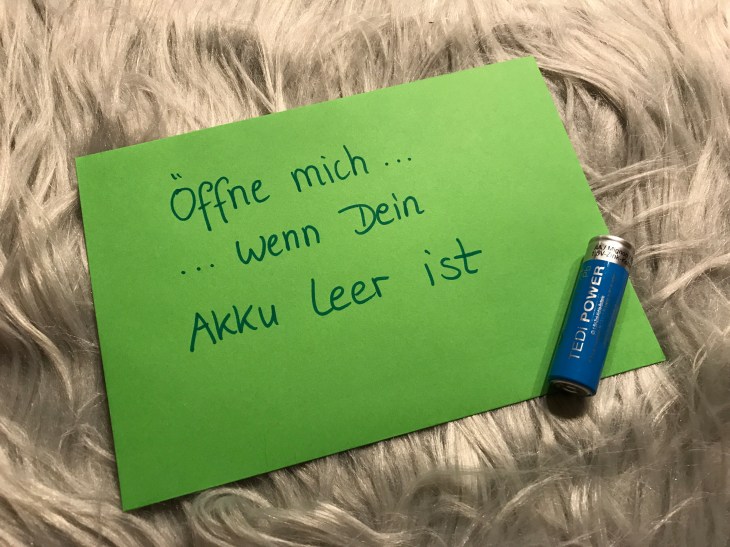 Öffne mich ...
... wenn Dein
Akku leer ist
TEDi POWER